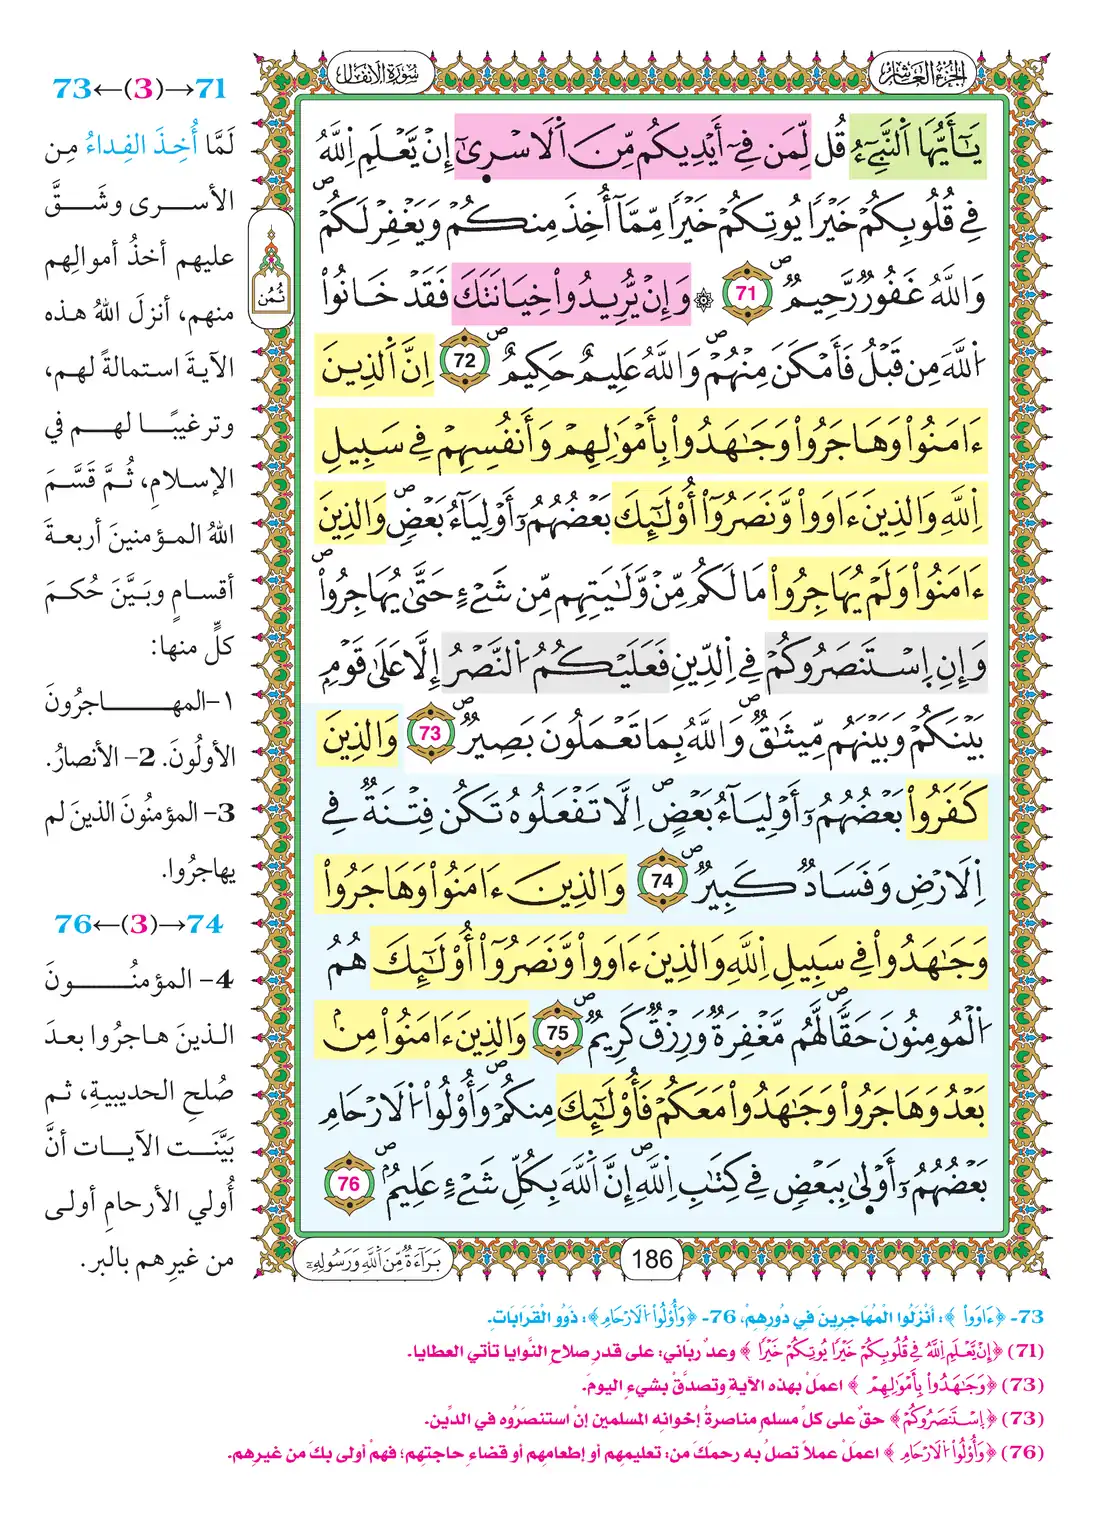 الجزء العاشر
سورة الأنفال
يَٰٓأَيُّهَا اَ۬لنَّبِےٓءُ قُل لِّمَن فِےٓ أَيْدِيكُم مِّنَ اَ۬لَاسْر۪يٰٓ إِنْ يَّعْلَمِ اِ۬للَّهُ
فِے قُلُوبِكُمْ خَيْراٗ يُوتِكُمْ خَيْراٗ مِّمَّآ أُخِذَ مِنكُمْ وَيَغْفِرْ لَكُمْۖ
وَاللَّهُ غَفُورٞ رَّحِيمٞۖ 71 ۞ وَإِنْ يُّرِيدُواْ خِيَانَتَكَ فَقَدْ خَانُواْ
اُ۬للَّهَ مِن قَبْلُ فَأَمْكَنَ مِنْهُمْۖ وَاللَّهُ عَلِيمٌ حَكِيمٌۖ 72 اِنَّ اَ۬لذِينَ
ءَامَنُواْ وَهَاجَرُواْ وَجَٰهَدُواْ بِأَمْوَٰلِهِمْ وَأَنفُسِهِمْ فِے سَبِيلِ
اِ۬للَّهِ وَالذِينَ ءَاوَواْ وَّنَصَرُوٓاْ أُوْلَٰٓئِكَ بَعْضُهُمُۥٓ أَوْلِيَآءُ بَعْضٖۖ وَالذِينَ
ءَامَنُواْ وَلَمْ يُهَاجِرُواْ مَا لَكُم مِّنْ وَّلَٰيَتِهِم مِّن شَےْءٍ حَتَّيٰ يُهَاجِرُواْۖ
وَإِنِ اِ۪سْتَنصَرُوكُمْ فِے اِ۬لدِّينِ فَعَلَيْكُمُ اُ۬لنَّصْرُ إِلَّا عَلَيٰ قَوْمِۢ
بَيْنَكُمْ وَبَيْنَهُم مِّيثَٰقٞۖ وَاللَّهُ بِمَا تَعْمَلُونَ بَصِيرٞۖ 73 وَالذِينَ
كَفَرُواْ بَعْضُهُمُۥٓ أَوْلِيَآءُ بَعْضٍۖ اِلَّا تَفْعَلُوهُ تَكُن فِتْنَةٞ فِے
اِ۬لَارْضِ وَفَسَادٞ كَبِيرٞۖ 74 وَالذِينَ ءَامَنُواْ وَهَاجَرُواْ
وَجَٰهَدُواْ فِے سَبِيلِ اِ۬للَّهِ وَالذِينَ ءَاوَواْ وَّنَصَرُوٓاْ أُوْلَٰٓئِكَ هُمُ
اُ۬لْمُومِنُونَ حَقّاٗۖ لَّهُم مَّغْفِرَةٞ وَرِزْقٞ كَرِيمٞۖ 75 وَالذِينَ ءَامَنُواْ مِنۢ
بَعْدُ وَهَاجَرُواْ وَجَٰهَدُواْ مَعَكُمْ فَأُوْلَٰٓئِكَ مِنكُمْۖ وَأُوْلُواْ اُ۬لَارْحَامِ
بَعْضُهُمُۥٓ أَوْل۪يٰ بِبَعْضٖ فِے كِتَٰبِ اِ۬للَّهِۖ إِنَّ اَ۬للَّهَ بِكُلِّ شَےْءٍ عَلِيمٌۖ 76
ثُمُن
186
بَرَآءَةٞ مِّنَ اَ۬للَّهِ وَرَسُولِهِۦٓ
71→(3)←73
لَمَّا أُخِذَ الفِداءُ مِن
الأسرى وشَقَّ
عليهم أخذُ أموالِهم
منهم، أنزلَ اللهُ هذه
الآيةَ استمالةً لهم،
وترغيبًا لهم في
الإسلامِ، ثُمَّ قَسَّمَ
اللهُ المؤمنينَ أربعةَ
أقسامٍ وبَيَّنَ حُكمَ
كلٍّ منها:
١-المهاجرُونَ
الأولُونَ. 2- الأنصارُ.
3- المؤمنُونَ الذينَ لم
يهاجرُوا.
74→(3)←76
4- المؤمنُونَ
الذينَ هاجرُوا بعدَ
صُلحِ الحديبيةِ، ثم
بَيَّنَت الآيات أنَّ
أُولي الأرحامِ أولى
من غيرِهم بالبر.
73- ﴿ءَاوَواْ﴾: أَنْزَلُوا الْمُهَاجِرِينَ فِي دُورِهِمْ، 76- ﴿وَأُوْلُواْ اُ۬لَارْحَامِ﴾: ذَوُو الْقَرَابَاتِ.
(71) ﴿إِنْ يَّعْلَمِ اِ۬للَّهُ فِے قُلُوبِكُمْ خَيْراٗ يُوتِكُمْ خَيْراٗ﴾ وعدٌ ربّاني: على قدرِ صلاحِ النَّوايا تأتي العطايا.
(73) ﴿وَجَٰهَدُواْ بِأَمْوَٰلِهِمْ﴾ اعملْ بهذه الآيةِ وتصدقْ بشيءٍ اليومَ.
(73) ﴿اِ۪سْتَنصَرُوكُمْ﴾ حقٌ على كلِّ مسلمٍ مناصرةُ إخوانِه المسلمين إنْ استنصرُوه في الدِّينِ.
(76) ﴿وَأُوْلُواْ اُ۬لَارْحَامِ﴾ اعملْ عملاً تصلُ به رحمكَ من: تعليمِهم أو إطعامِهم أو قضاءِ حاجتِهم؛ فهمْ أولى بكَ من غيرِهم.